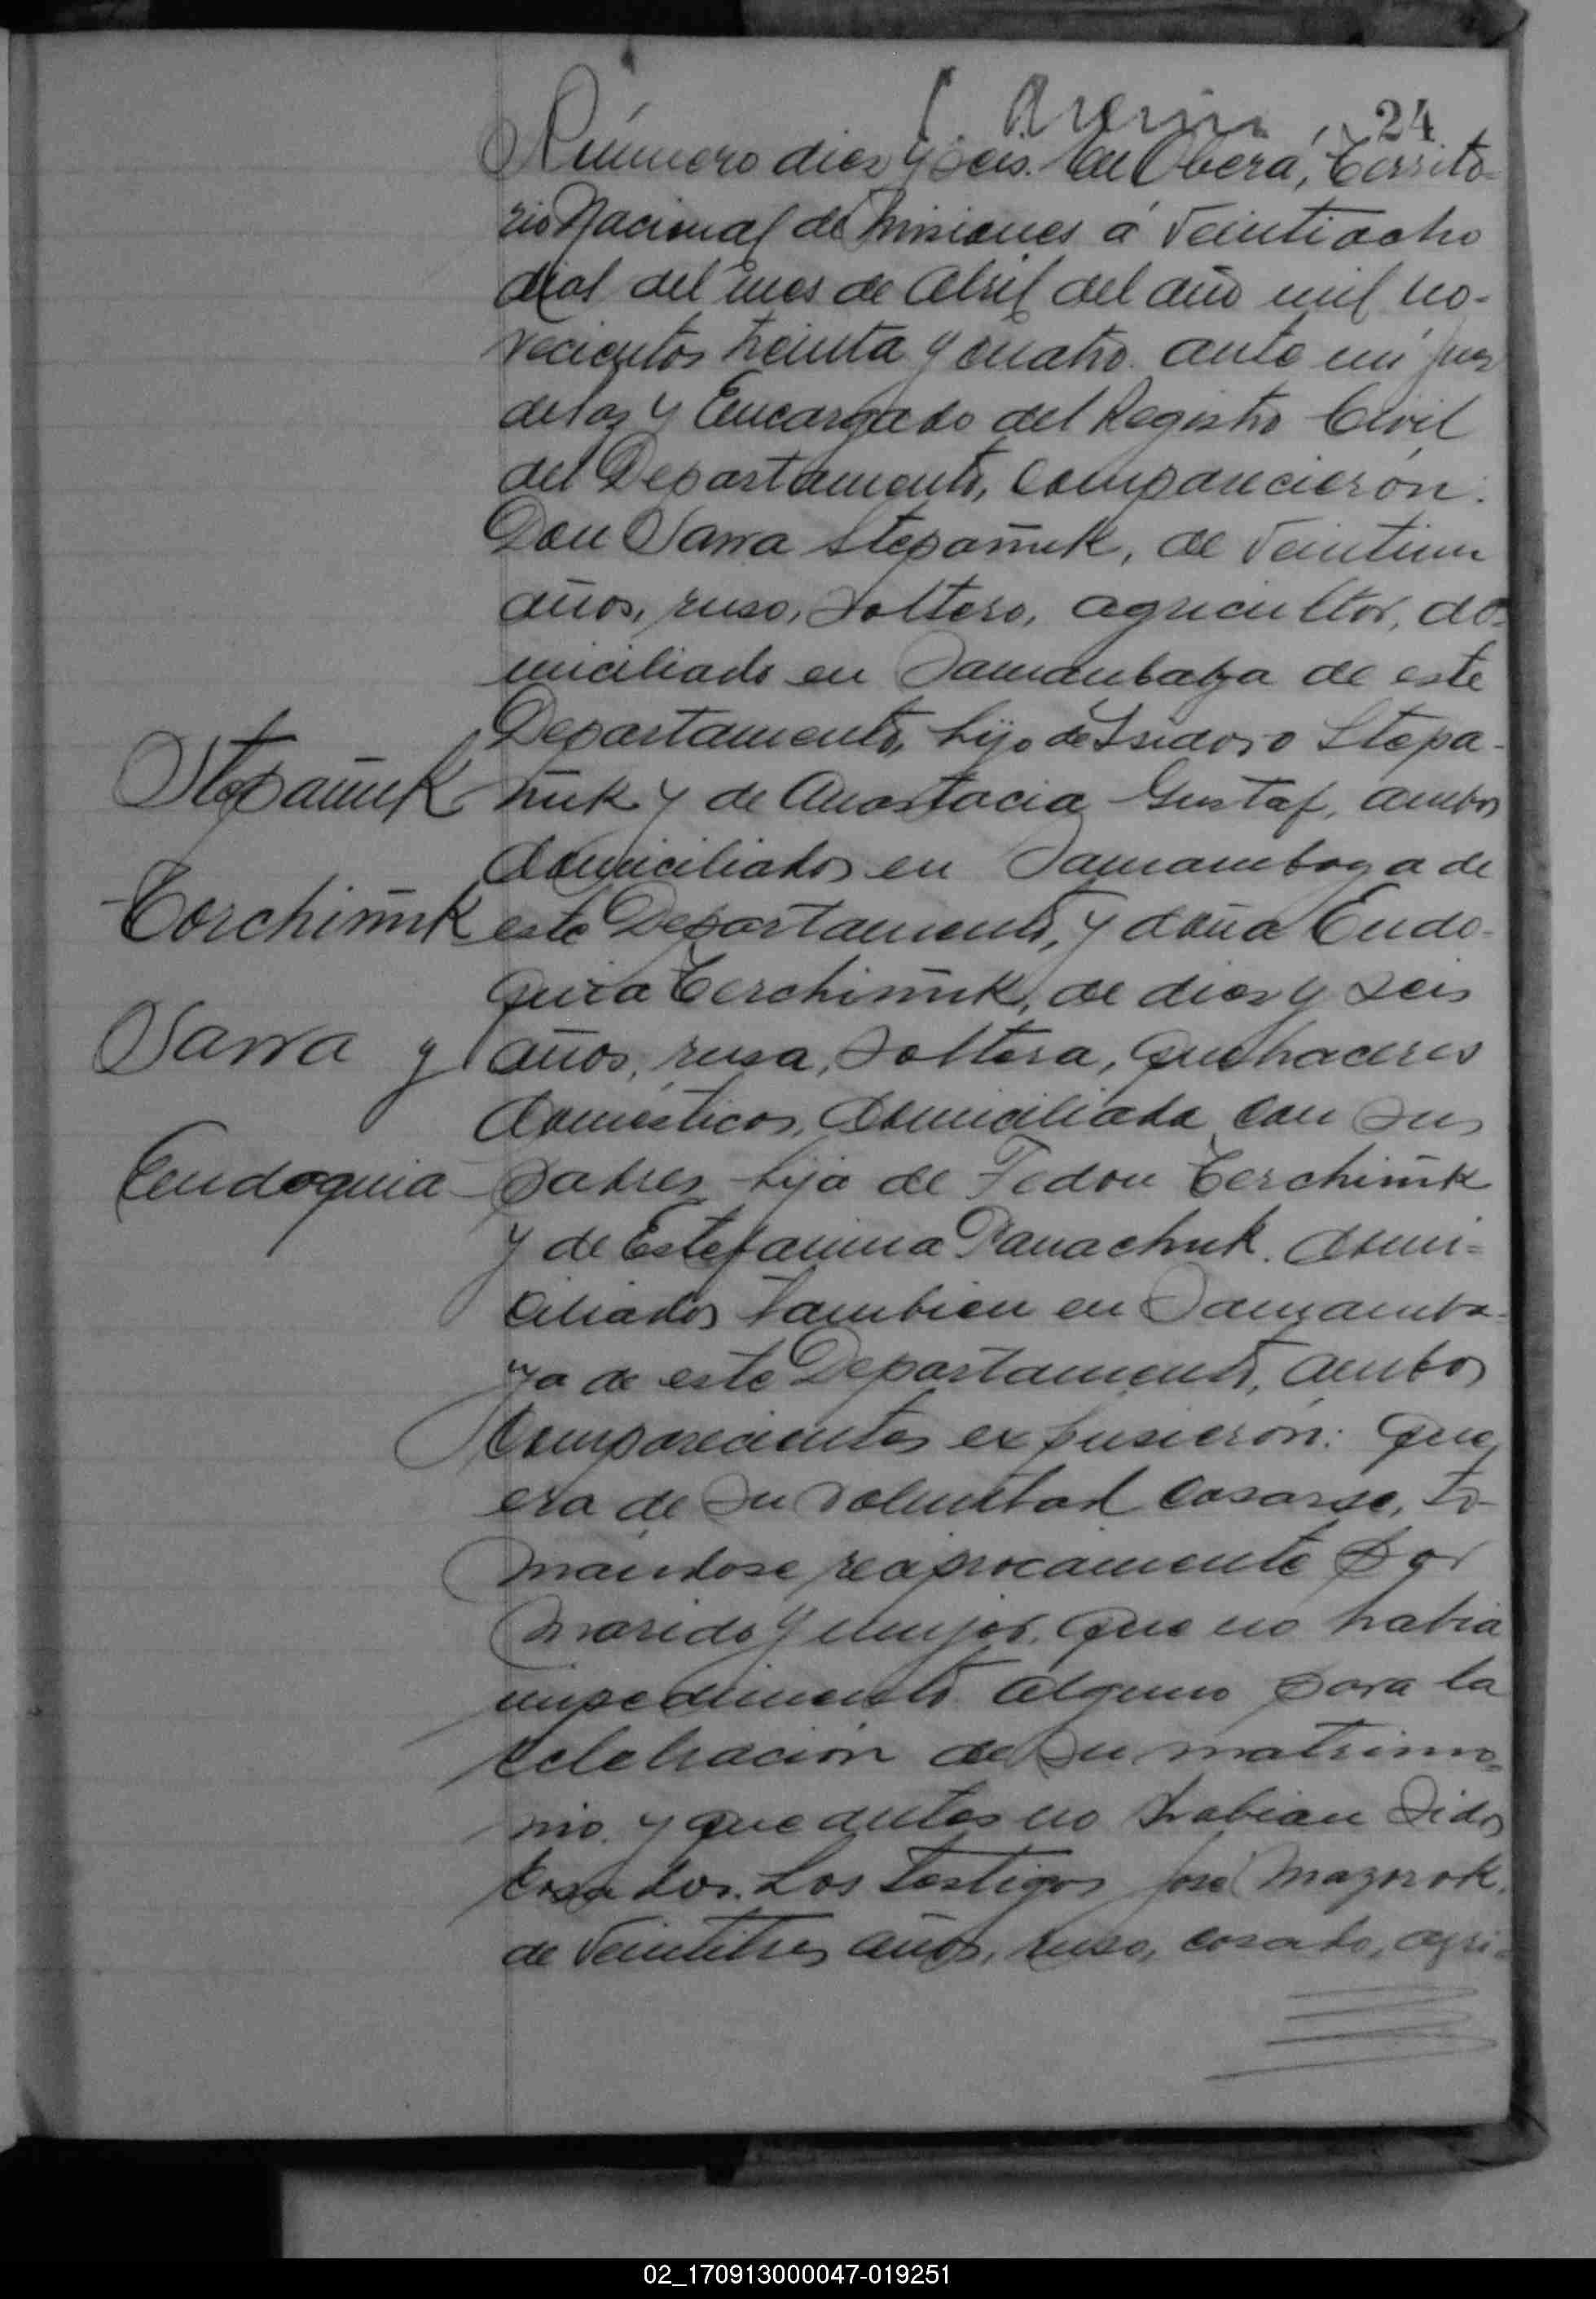 24
Número diez y seis. En Oberá, Territo-
rio Nacional de Misiones á veintiocho
dias del mes de Abril del año mil no-
vecientos treinta y cuatro. ante mi Juez
de Paz y Encargado del Registro Civil
del Departamento, comparecierón:
Don Sawa Stepañuk, de veintiun
años, ruso, soltero, agricultor, do-
miciliado en Samambaya de este
Departamento, hijo de Isidoro Stepa-
ñuk y de Anastacia Gustaf, ambos
domiciliados en Samambaya de
este Departamento, y doña Eudo-
quia Terchiñuk, de diez y seis
años, rusa, soltera, quehaceres
domésticos, domiciliada con sus
padres hija de Fedon Terchiñuk
y de Estefanina Panachuk. domi-
ciliados tambien en Samamba-
ya de este Departamento, ambos
comparecientes expusierón: Que
era de su voluntad casarse, to-
mandose reciprocamente por
marido y mujer. Que no habia
impedimento alguno para la
celebración de su matrimo-
nio. y que antes no habian sidos
casados. Los testigos José Mazorok,
de veintitres años, ruso, casado, agri-
Stepañuk
Terchiñuk
Sawa y
Eudoquia
02_170913000047-019251